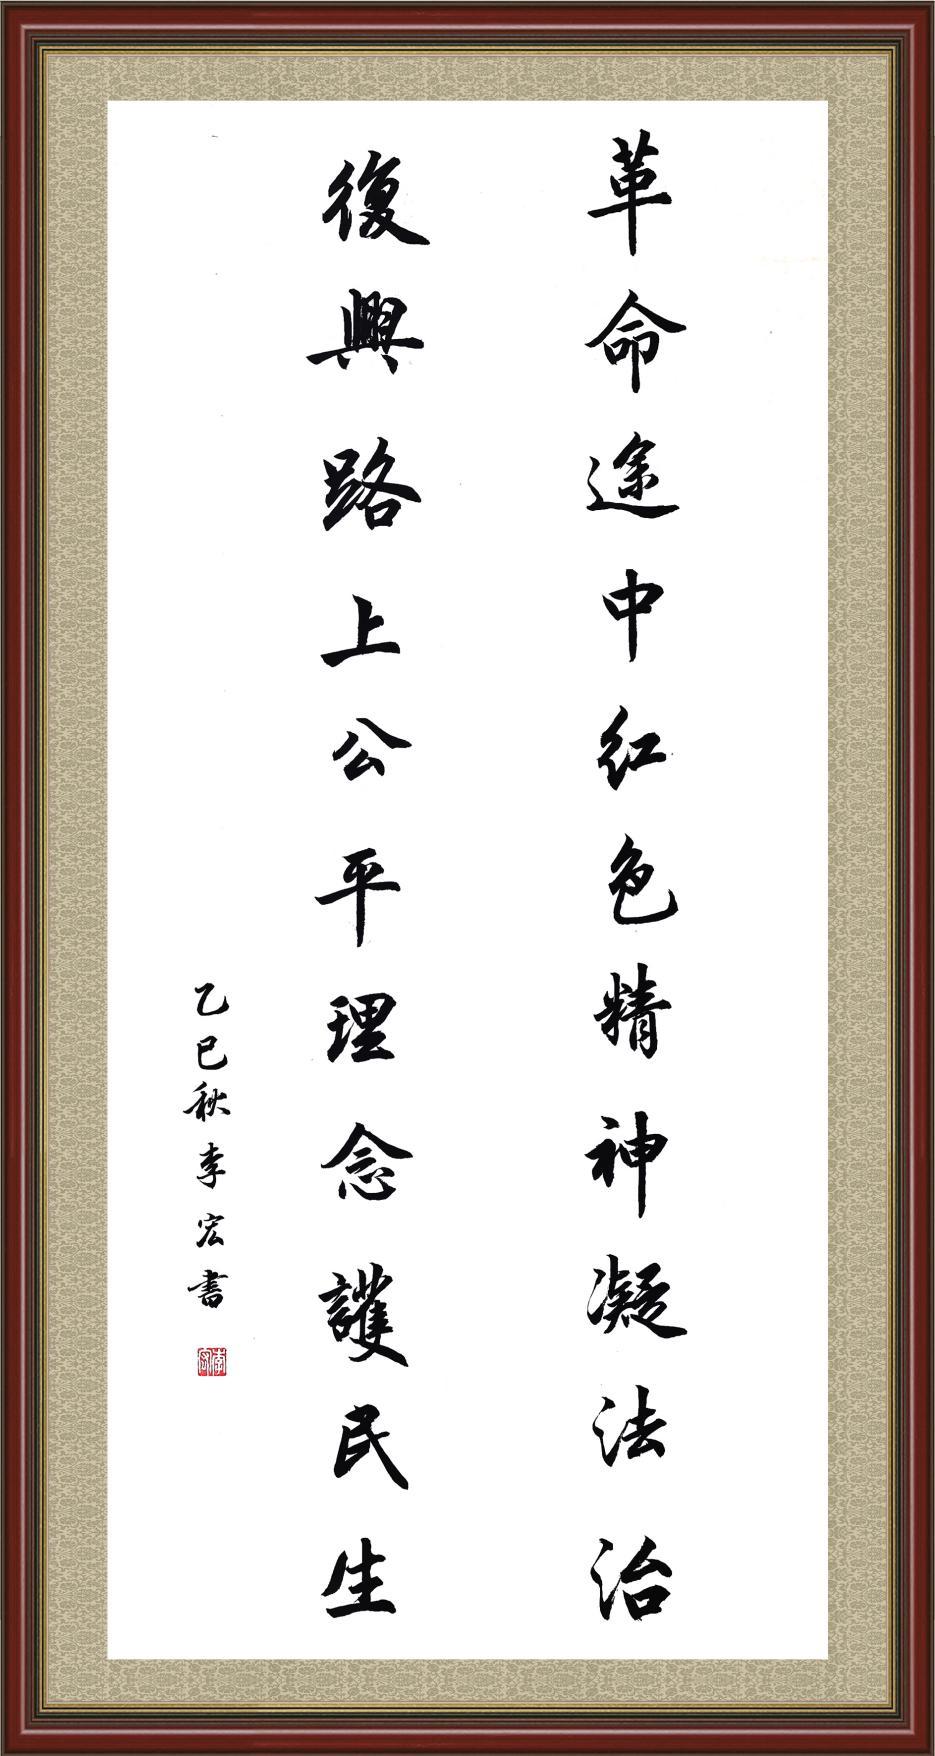 革命途中红色精神凝法治
復興路上公平理念護民生
乙巳秋李宏書